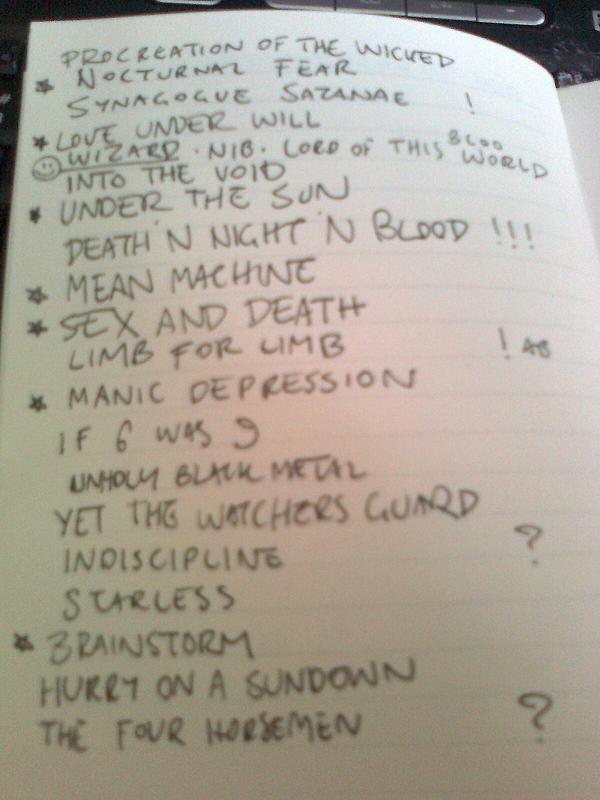 PROCREATION OF THE WICKED
★ NOCTURNAL FEAR
SYNAGOGUE SATANAE !
★ LOVE UNDER WILL
☺ WIZARD · NIB · LORD OF THIS WORLD
INTO THE VOID
★ UNDER THE SUN
DEATH 'N NIGHT 'N BLOOD !!!
★ MEAN MACHINE
★ SEX AND DEATH
LIMB FOR LIMB ! AB
★ MANIC DEPRESSION
IF 6 WAS 9
UNHOLY BLACK METAL
YET THE WATCHERS GUARD
INDISCIPLINE ?
STARLESS
★ BRAINSTORM
HURRY ON A SUNDOWN
THE FOUR HORSEMEN ?